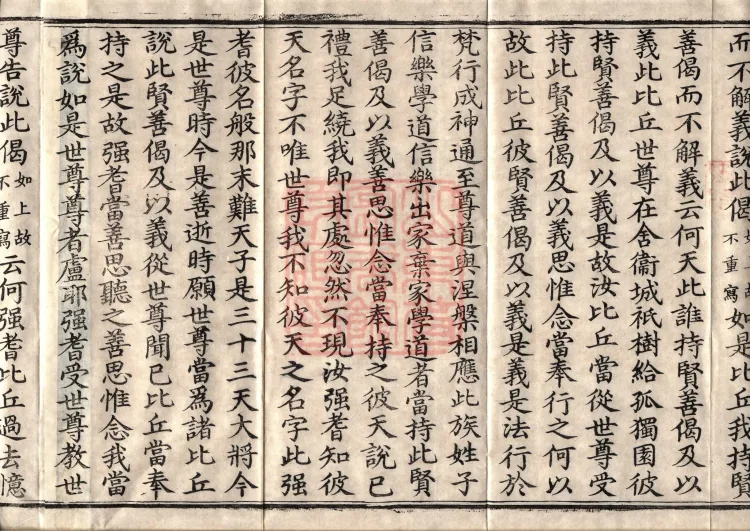 而不解義說此偈如上故不重寫如是比丘我持賢
善偈而不解義云何天此誰持賢善偈及以
義此比丘世尊在舍衞城祇樹給孤獨園彼
持賢善偈及以義是故汝比丘當從世尊受
持此賢善偈及以義思惟念當奉行之何以
故此比丘彼賢善偈及以義是義是法行於
梵行成神通至尊道與涅槃相應此族姓子
信樂學道信樂出家棄家學道者當持此賢
善偈及以義善思惟念當奉持之彼天說已
禮我足繞我即其處忽然不現汝强耆知彼
天名字不唯世尊我不知彼天之名字此强
耆彼名般那末難天子是三十三天大將今
是世尊時今是善逝時願世尊當爲諸比丘
說此賢善偈及以義從世尊聞已比丘當奉
持之是故强耆當善思聽之善思惟念我當
爲說如是世尊尊者盧耶强耆受世尊教世
尊告說此偈如上故不重寫云何强耆比丘過去憶